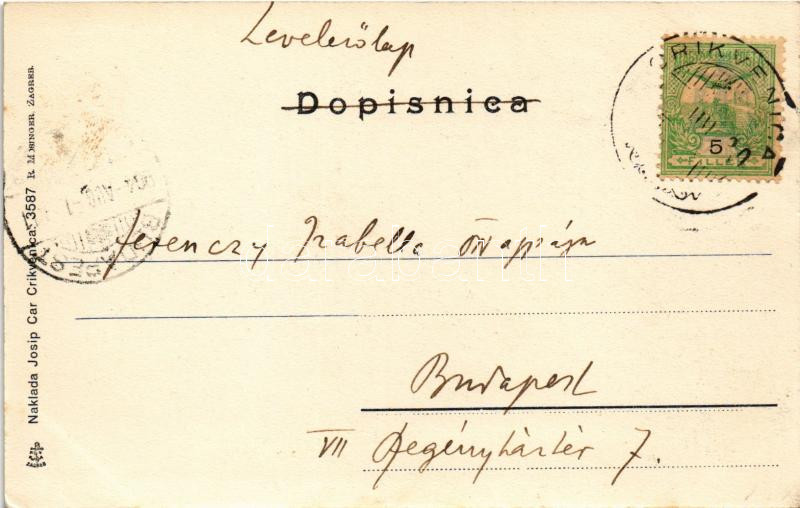 Levelezőlap
Dopisnica
CRIKVENICA
5
FILLÉR
Ferenczy Izabella Önagysága
Budapest
VII Szegényház tér 7.
Naklada Josip Car Crikvenica. 3587 R. MOSINGER. ZAGREB.
BUDAPEST